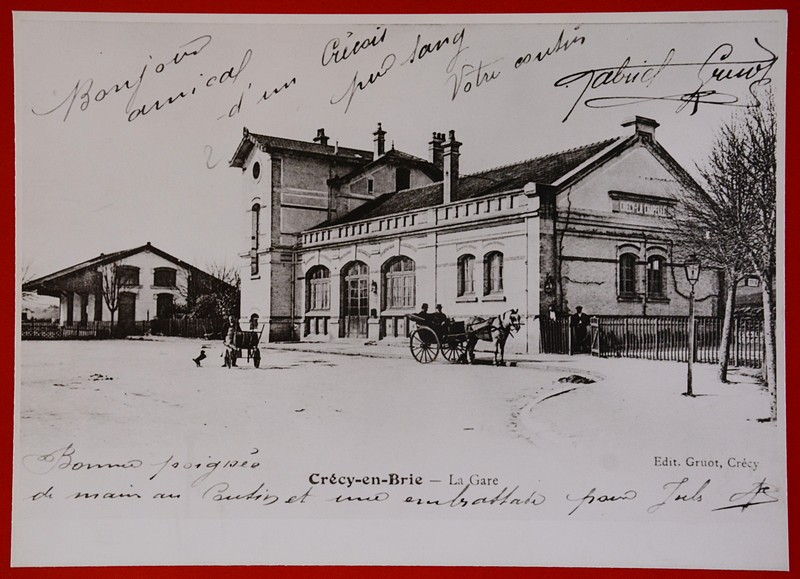 Bonjour amical d'un Crécois pur sang
Votre cousin Gabriel Gruot
CRÉCY-LA-CHAPELLE
Edit. Gruot, Crécy
Crécy-en-Brie – La Gare
Bonne poignée
de main au Cousin et une embrassade pour Juls